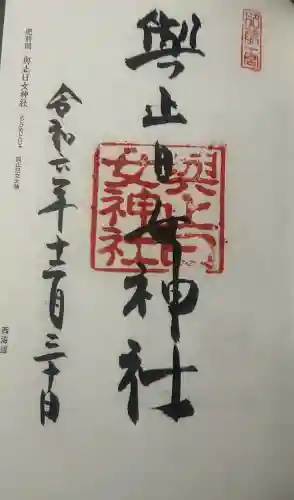 肥前一宮
與止日女神社
與止日女神社
令和六年十二月三十日
肥前國 與止日女神社
與止日女神
西海道